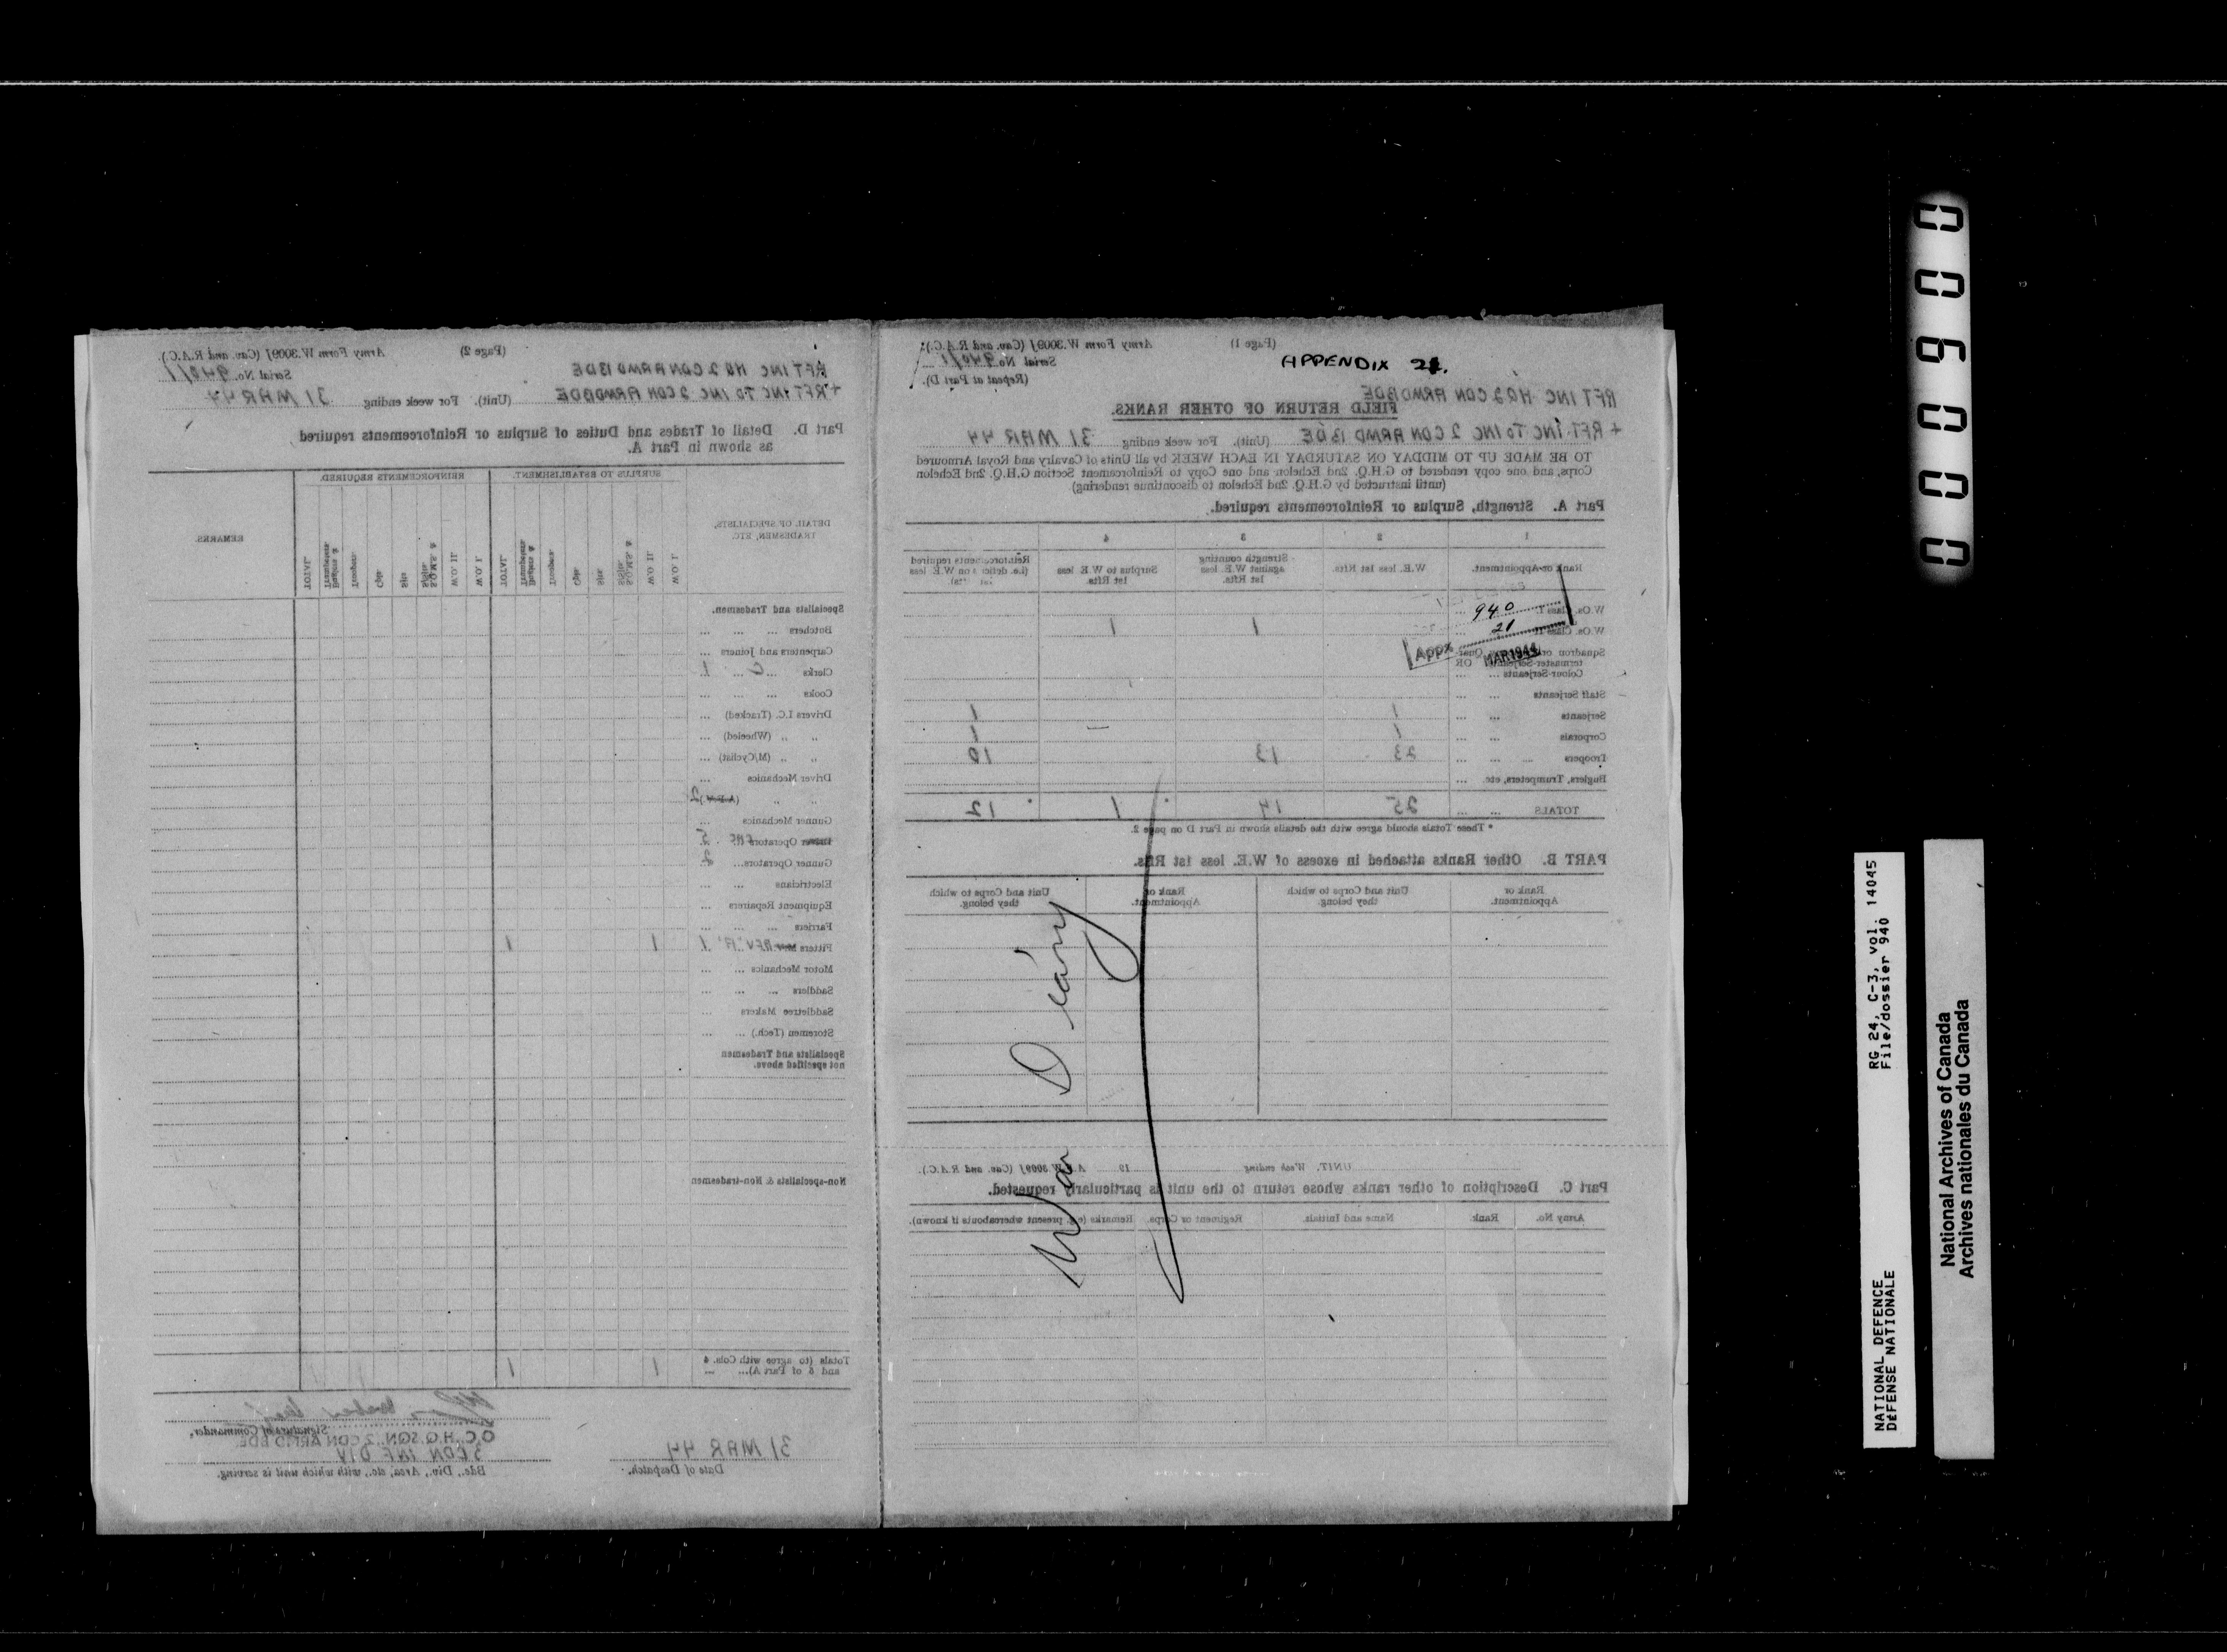 APPENDIX 21.
(Page 1)
Army Form W.3009J (Cav. and R.A.C.)
Serial No. 940/1
(Repeat at Part D).
RFT INC HQ 2 CDN ARMD BDE
FIELD RETURN OF OTHER RANKS.
+ RFT INC TO INC 2 CDN ARMD BDE (Unit). For week ending 31 MAR 44
TO BE MADE UP TO MIDDAY ON SATURDAY IN EACH WEEK by all Units of Cavalry and Royal Armoured
Corps, and one copy rendered to G.H.Q. 2nd Echelon and one Copy to Reinforcement Section G.H.Q. 2nd Echelon
(until instructed by G.H.Q. 2nd Echelon to discontinue rendering)
Part A. Strength, Surplus or Reinforcements required.
1 2 3 4
Rank or Appointment. W.E. less 1st Rfts. Strength counting against W.E. less 1st Rfts. Surplus to W.E. less 1st Rfts. Reinforcements required (i.e. deficits on W.E. less 1st Rfts).
W.Os. Class I.
W.Os. Class II 1 1
940
21
Appx
MAR 1944
Squadron or Quar-
termaster-Serjeants OR
Colour-Serjeants ...
Staff Serjeants ...
Serjeants ... 1 1
Corporals ... 1 — 1
Troopers ... 23 13 10
Buglers, Trumpeters, etc. ...
TOTALS ... 25 14 * 1 * 12
* These Totals should agree with the details shown in Part D on page 2.
PART B. Other Ranks attached in excess of W.E. less 1st Rfts.
Rank or Appointment. Unit and Corps to which they belong. Rank or Appointment. Unit and Corps to which they belong.
War Diary
UNIT. Week ending 19 A.F. W.3009J (Cav. and R.A.C.).
Part C. Description of other ranks whose return to the unit is particularly requested.
Army No. Rank Name and Initials. Regiment or Corps. Remarks (e.g. present whereabouts if known).
(Page 2)
Army Form W.3009J (Cav. and R.A.C.)
Serial No. 940/1
RFT INC HQ 2 CDN ARMD BDE
+ RFT INC TO INC 2 CDN ARMD BDE (Unit). For week ending 31 MAR 44
Part D. Detail of Trades and Duties of Surplus or Reinforcements required
as shown in Part A.
DETAIL OF SPECIALISTS, TRADESMEN, ETC. SURPLUS TO ESTABLISHMENT. REINFORCEMENTS REQUIRED. REMARKS.
W.O. I. W.O. II. Sjt. Cpl. Trooper TOTAL. W.O. I. W.O. II. Sjt. Cpl. Trooper TOTAL.
Specialists and Tradesmen.
Butchers ...
Carpenters and Joiners ...
Clerks ... C ... 1
Cooks ...
Drivers I.C. (Tracked) ...
" " (Wheeled) ...
" " (M/Cyclist) ...
Driver Mechanics ...
" " 2
Gunner Mechanics ...
Operators 5
Gunner Operators ... 2
Electricians ...
Equipment Repairers ...
Farriers ...
Fitters "A" 1 1 1
Motor Mechanics ...
Saddlers ...
Saddletree Makers ...
Storemen (Tech.) ...
Specialists and Tradesmen
not specified above.
Non-specialists & Non-tradesmen
Totals (to agree with Cols. 4
and 5 of Part A)... 1 1
Signature of Commander.
O.C., H.Q. SQN., 2 CDN ARMD BDE.
3 CDN INF DIV
Bde., Div., Area, etc., with which unit is serving.
31 MAR 44
Date of Despatch.
000900
NATIONAL DEFENCE RG 24, C-3, vol. 14045
DÉFENSE NATIONALE File/dossier 940
National Archives of Canada
Archives nationales du Canada